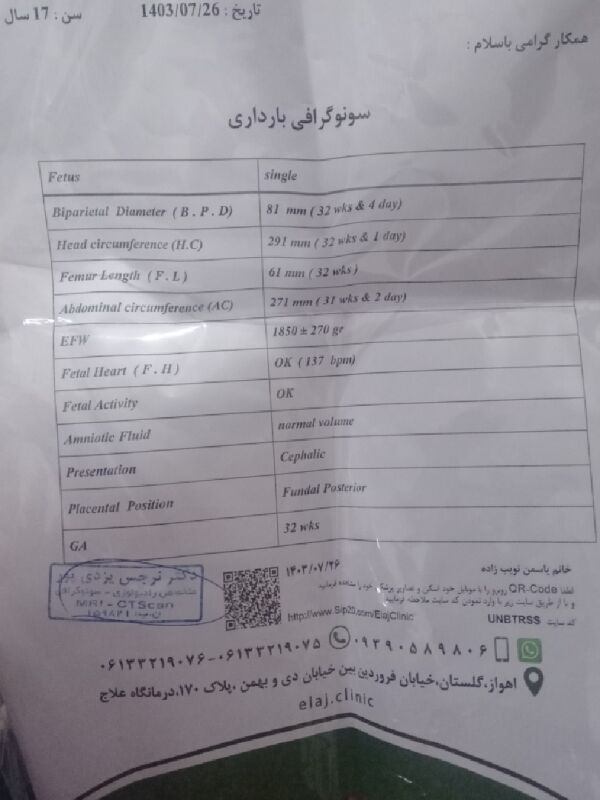 تاریخ : 1403/07/26
سن : 17 سال
همکار گرامی باسلام :
سونوگرافی بارداری
Fetus single
Biparietal Diameter ( B . P . D) 81 mm ( 32 wks & 4 day)
Head circumference (H.C) 291 mm ( 32 wks & 1 day)
Femur Length ( F . L ) 61 mm ( 32 wks )
Abdominal circumference (AC) 271 mm ( 31 wks & 2 day)
EFW 1850 ± 270 gr
Fetal Heart ( F . H ) OK ( 137 bpm)
Fetal Activity OK
Amniotic Fluid normal volume
Presentation Cephalic
Placental Position Fundal Posterior
GA 32 wks
دکتر نرجس یزدی پور
متخصص رادیولوژی - سونوگرافی
MRI - CTScan
۱۴۰۳/۰۷/۲۶
خانم یاسمن نویب زاده
لطفا QR-Code روبرو را با موبایل خود اسکن و تصاویر پزشکی خود را مشاهده فرمایید
و یا از طریق سایت زیر با وارد نمودن کد سایت ملاحظه فرمایید.
http://www.Sip20.com/ElajClinic
کد سایت UNBTRSS
۰۹۳۹۰۵۸۹۸۰۶
۰۶۱۳۳۲۱۹۰۷۶-۰۶۱۳۳۲۱۹۰۷۵
اهواز،گلستان،خیابان فروردین بین خیابان دی و بهمن ،پلاک ۱۷۰،درمانگاه علاج
elaj.clinic